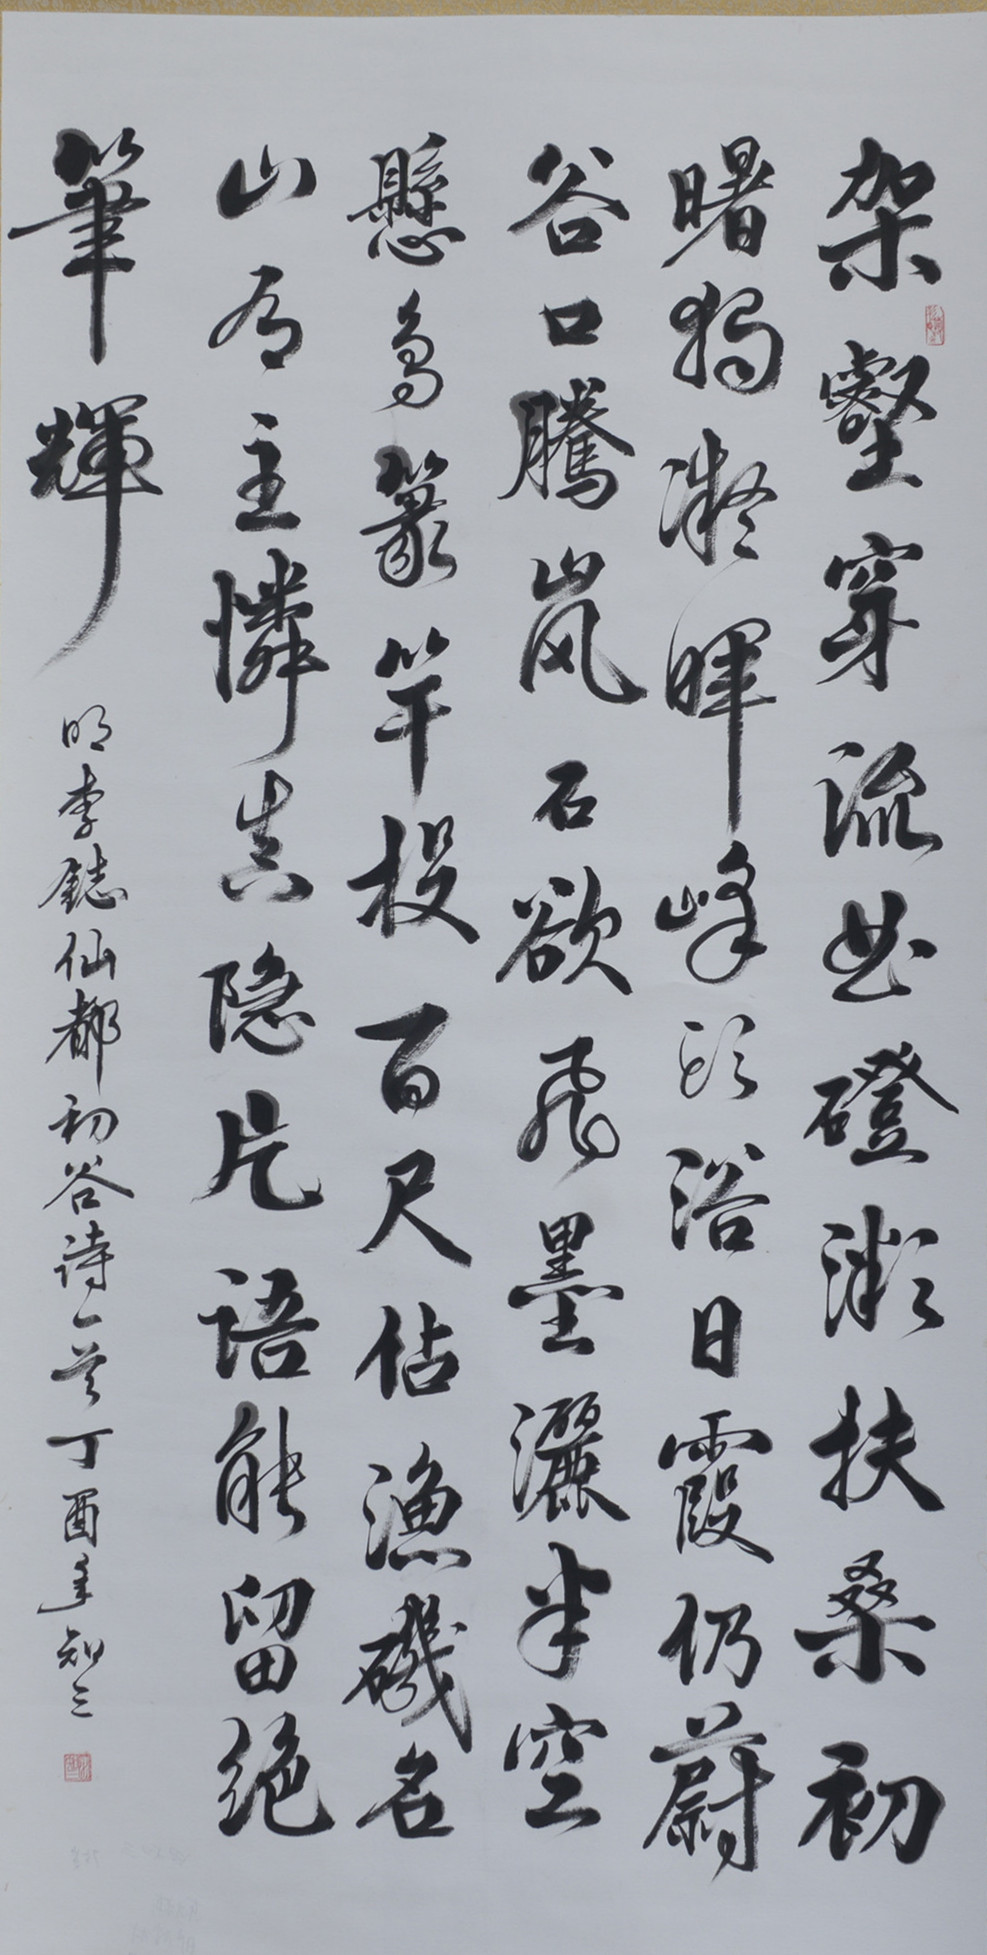 架壑穿流曲磴微扶桑初
曙独凝晖峰头浴日霞仍蔚
谷口腾岚石欲飛墨灑半空
懸鸟篆竿投百尺估渔磯名
山有主憐真隐片语能留绝
筆輝
明李鋕仙都初谷诗一首丁酉年知三